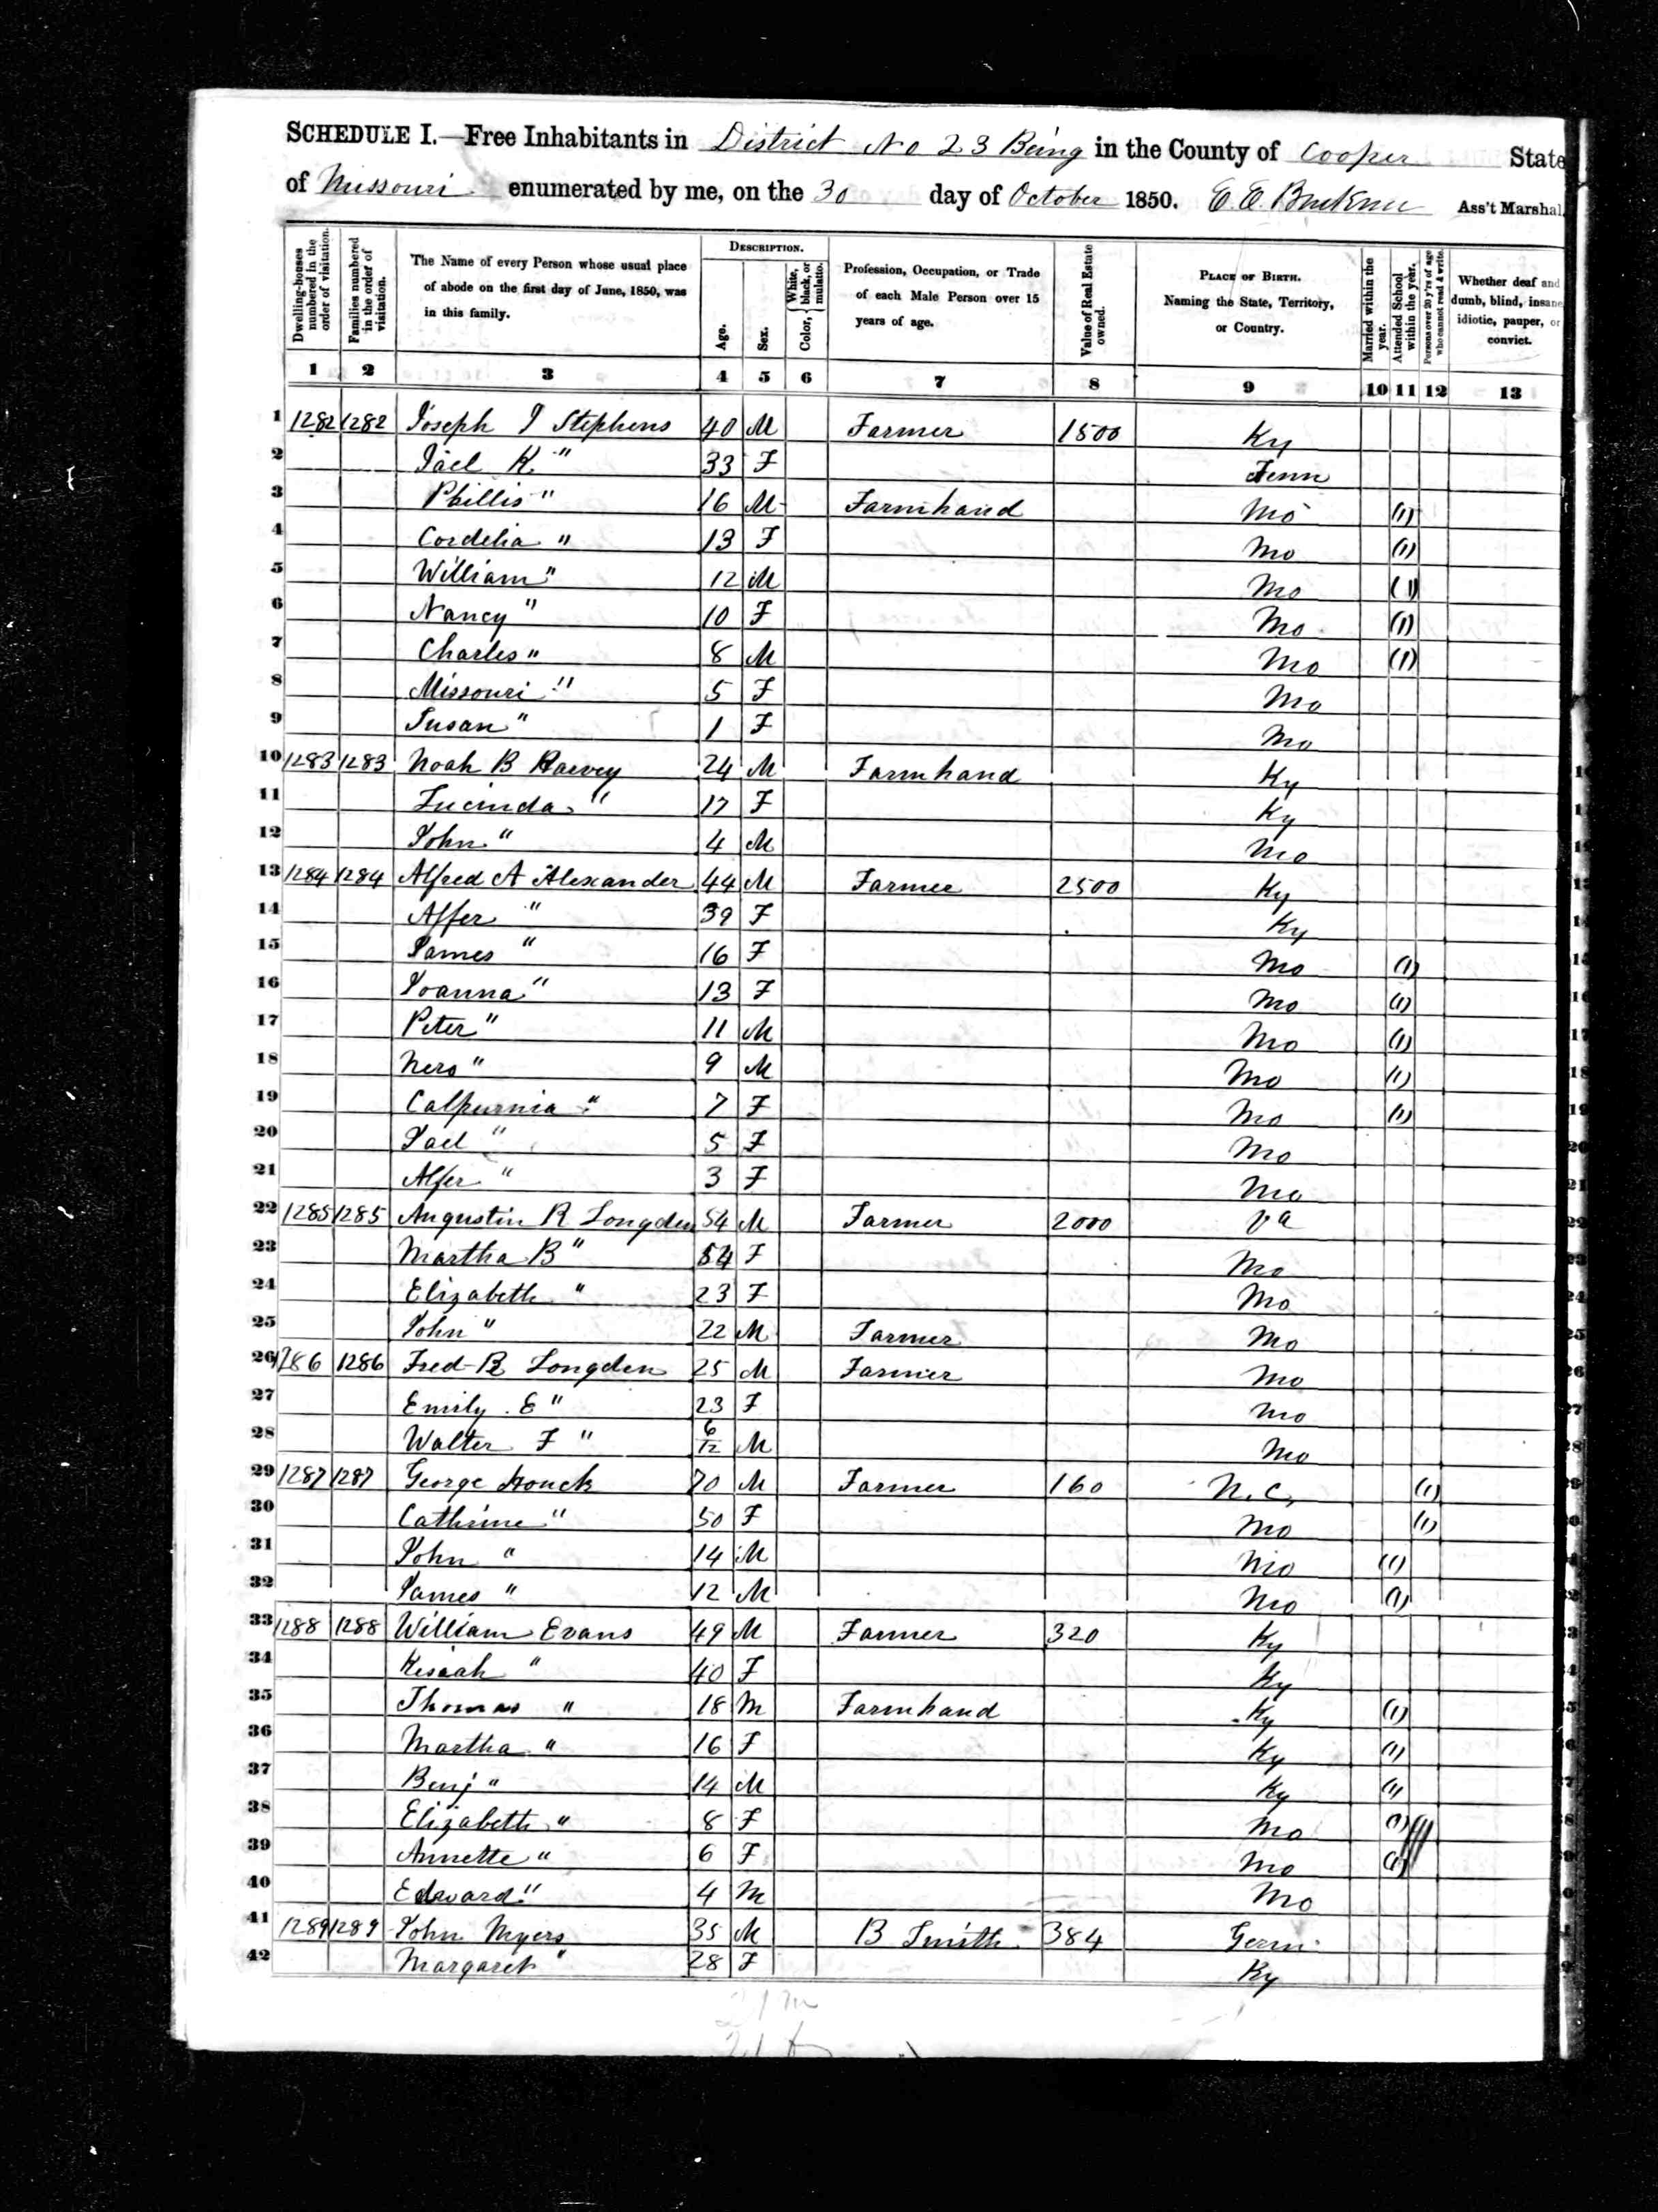 SCHEDULE I.—Free Inhabitants in District No 23 Being in the County of Cooper State
of Missouri enumerated by me, on the 30 day of October 1850. Ass't Marshal.
Dwelling-houses numbered in the order of visitation.
Families numbered in the order of visitation.
The Name of every Person whose usual place of abode on the first day of June, 1850, was in this family.
DESCRIPTION.
Age.
Sex.
Color, { White, black, or mulatto.
Profession, Occupation, or Trade of each Male Person over 15 years of age.
Value of Real Estate owned.
PLACE OF BIRTH. Naming the State, Territory, or Country.
Married within the year.
Attended School within the year.
Persons over 20 y'rs of age who cannot read & write.
Whether deaf and dumb, blind, insane, idiotic, pauper, or convict.
1 2 3 4 5 6 7 8 9 10 11 12 13
1 1282 1282 Joseph I Stephens 40 M Farmer 1500 Ky
2 Jael K. " 33 F Tenn
3 Phillis " 16 M Farmhand Mo (1)
4 Cordelia " 13 F Mo (1)
5 William " 12 M Mo (1)
6 Nancy " 10 F Mo (1)
7 Charles " 8 M Mo (1)
8 Missouri " 5 F Mo
9 Susan " 1 F Mo
10 1283 1283 Noah B 24 M Farmhand Ky
11 Lucinda " 17 F Ky
12 John " 4 M Mo
13 1284 1284 Alfred A Alexander 44 M Farmer 2500 Ky
14 Affer " 39 F Ky
15 James " 16 F Mo (1)
16 Joanna " 13 F Mo (1)
17 Peter " 11 M Mo (1)
18 Nero " 9 M Mo (1)
19 Calpurnia " 7 F Mo (1)
20 Jael " 5 F Mo
21 Affer " 3 F Mo
22 1285 1285 Augustin R Longden 54 M Farmer 2000 Va
23 Martha B " 54 F Mo
24 Elizabeth " 23 F Mo
25 John " 22 M Farmer Mo
26 1286 1286 Fred R Longden 25 M Farmer Mo
27 Emily E " 23 F Mo
28 Walter F " 6/12 M Mo
29 1287 1287 George Houck 70 M Farmer 160 N.C. (1)
30 Cathrine " 50 F Mo (1)
31 John " 14 M Mo (1)
32 James " 12 M Mo (1)
33 1288 1288 William Evans 49 M Farmer 320 Ky
34 Kesiah " 40 F Ky
35 Thomas " 18 M Farmhand Ky (1)
36 Martha " 16 F Ky (1)
37 Benj " 14 M Ky (1)
38 Elizabeth " 8 F Mo (1)
39 Annette " 6 F Mo (1)
40 Edward " 4 M Mo
41 1289 1289 John Myers 35 M B Smith 384 Germ
42 Margaret " 28 F Ky
21 m